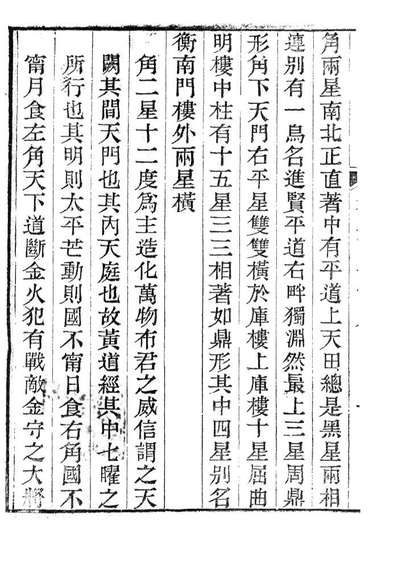 角兩星南北正直著中有平道上天田總是黑星兩相
連別有一鳥名進賢平道右畔獨淵然最上三星周鼎
形角下天門右平星雙雙橫於庫樓上庫樓十星屈曲
明樓中柱有十五星三三相著如鼎形其中四星別名
衡南門樓外兩星橫
角二星十二度為主造化萬物布君之威信謂之天
闕其間天門也其內天庭也故黃道經其中七曜之
所行也其明則太平芒動則國不甯日食右角國不
甯月食左角天下道斷金火犯有戰敵金守之大將